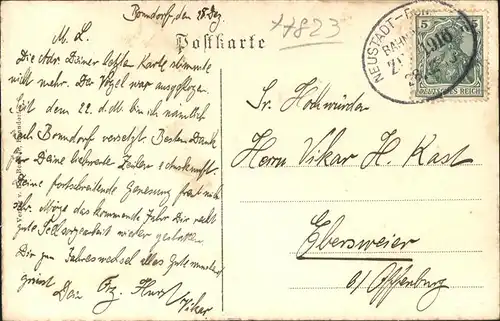 Bonndorf, den 28. Dez.
17823
M. L.
Die Adr. Deiner letzten Karte stimmte
nicht mehr. Der Vogel war ausgeflogen.
Seit dem 22. d. M. bin ich nämlich
nach Bonndorf versetzt. Besten Dank
für Deine liebevolle Zeilen &
Deine fortschreitende Genesung freut mich
sehr. Möge das kommende Jahr Dir recht
gute Seelsorgearbeit wieder gestatten.
Dir zum Jahreswechsel alles Gute
grüsst Dein Frz. Hurst
Vikar
Postkarte
NEUSTADT-BON
BAHN
ZUG
1910
5
DEUTSCHES REICH
Sr. Hochwürden
Herrn Vikar H. Kast
Ebersweier
b/ Offenburg